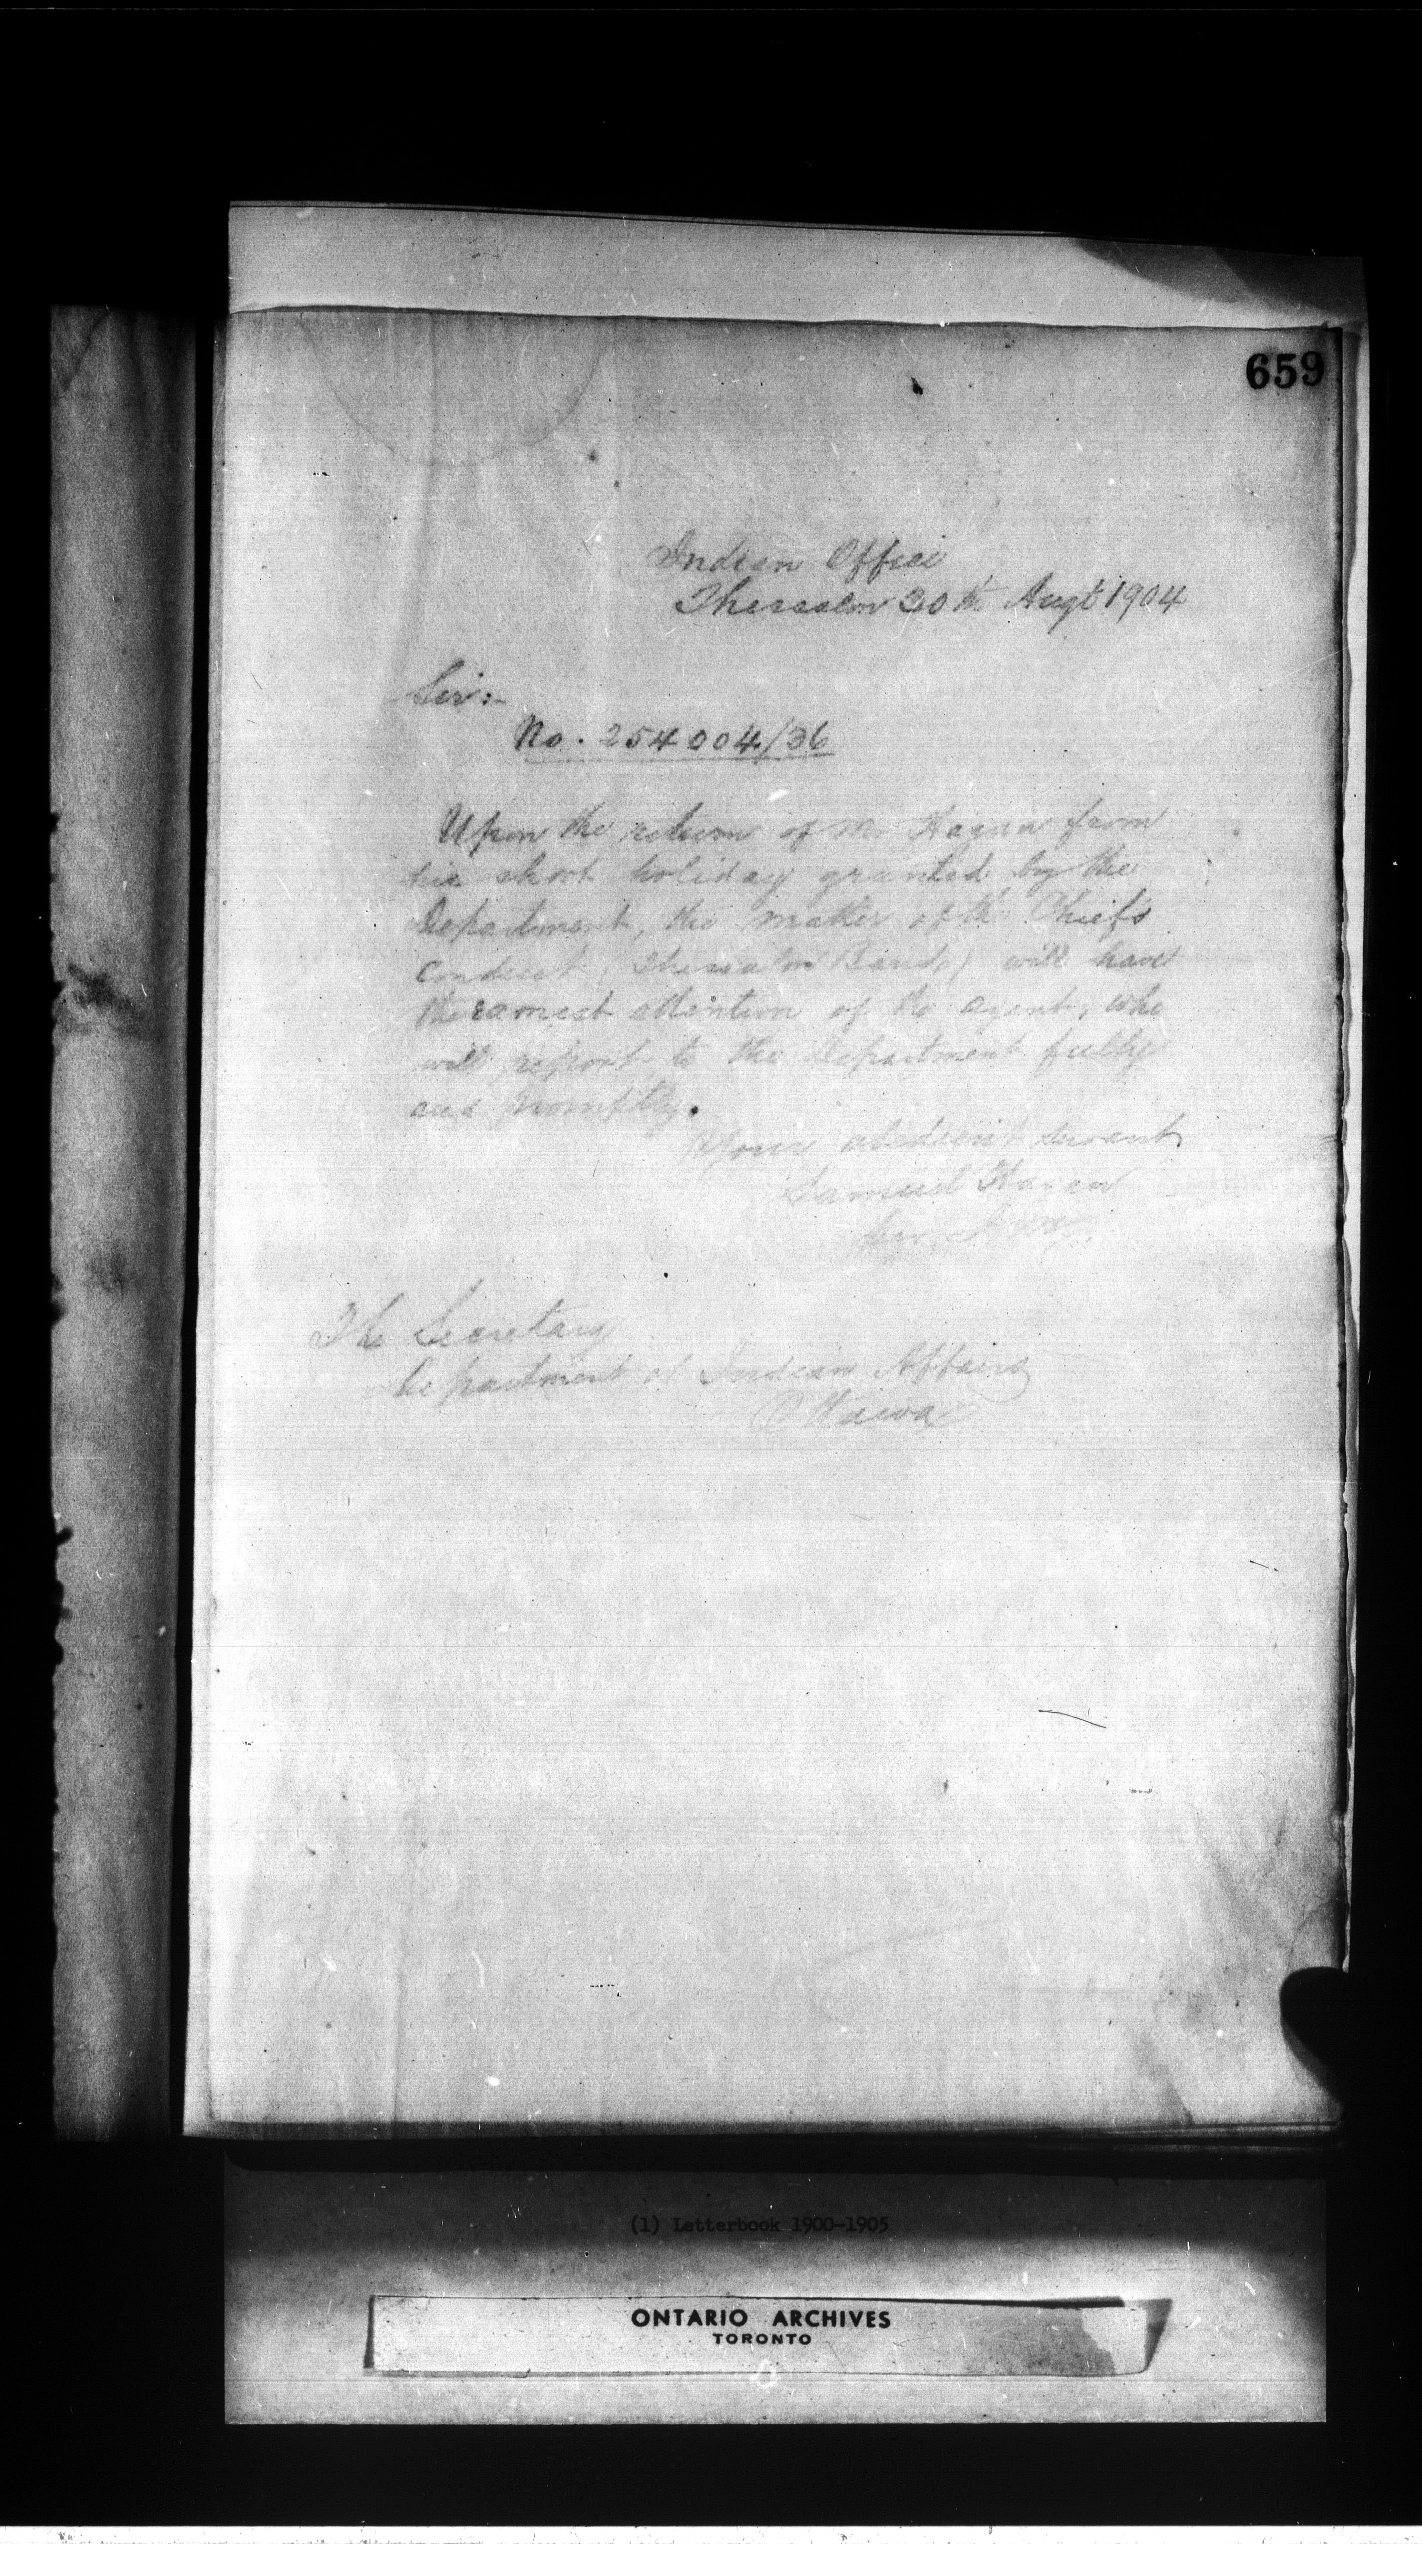 659
Indian Office
Thessalon 30th Augt 1904
Sir:-
No. 254004/36
Upon the return of Mr Hagan from
his short holiday granted by the
Department, the matter of the Chief's
conduct, (Thessalon Band,) will have
the earnest attention of the agent, who
will report to the department fully
and promptly.
Your obedient servant
Samuel Hagan
per
The Secretary
Department of Indian Affairs
Ottawa
(1) Letterbook 1900-1905
ONTARIO ARCHIVES
TORONTO